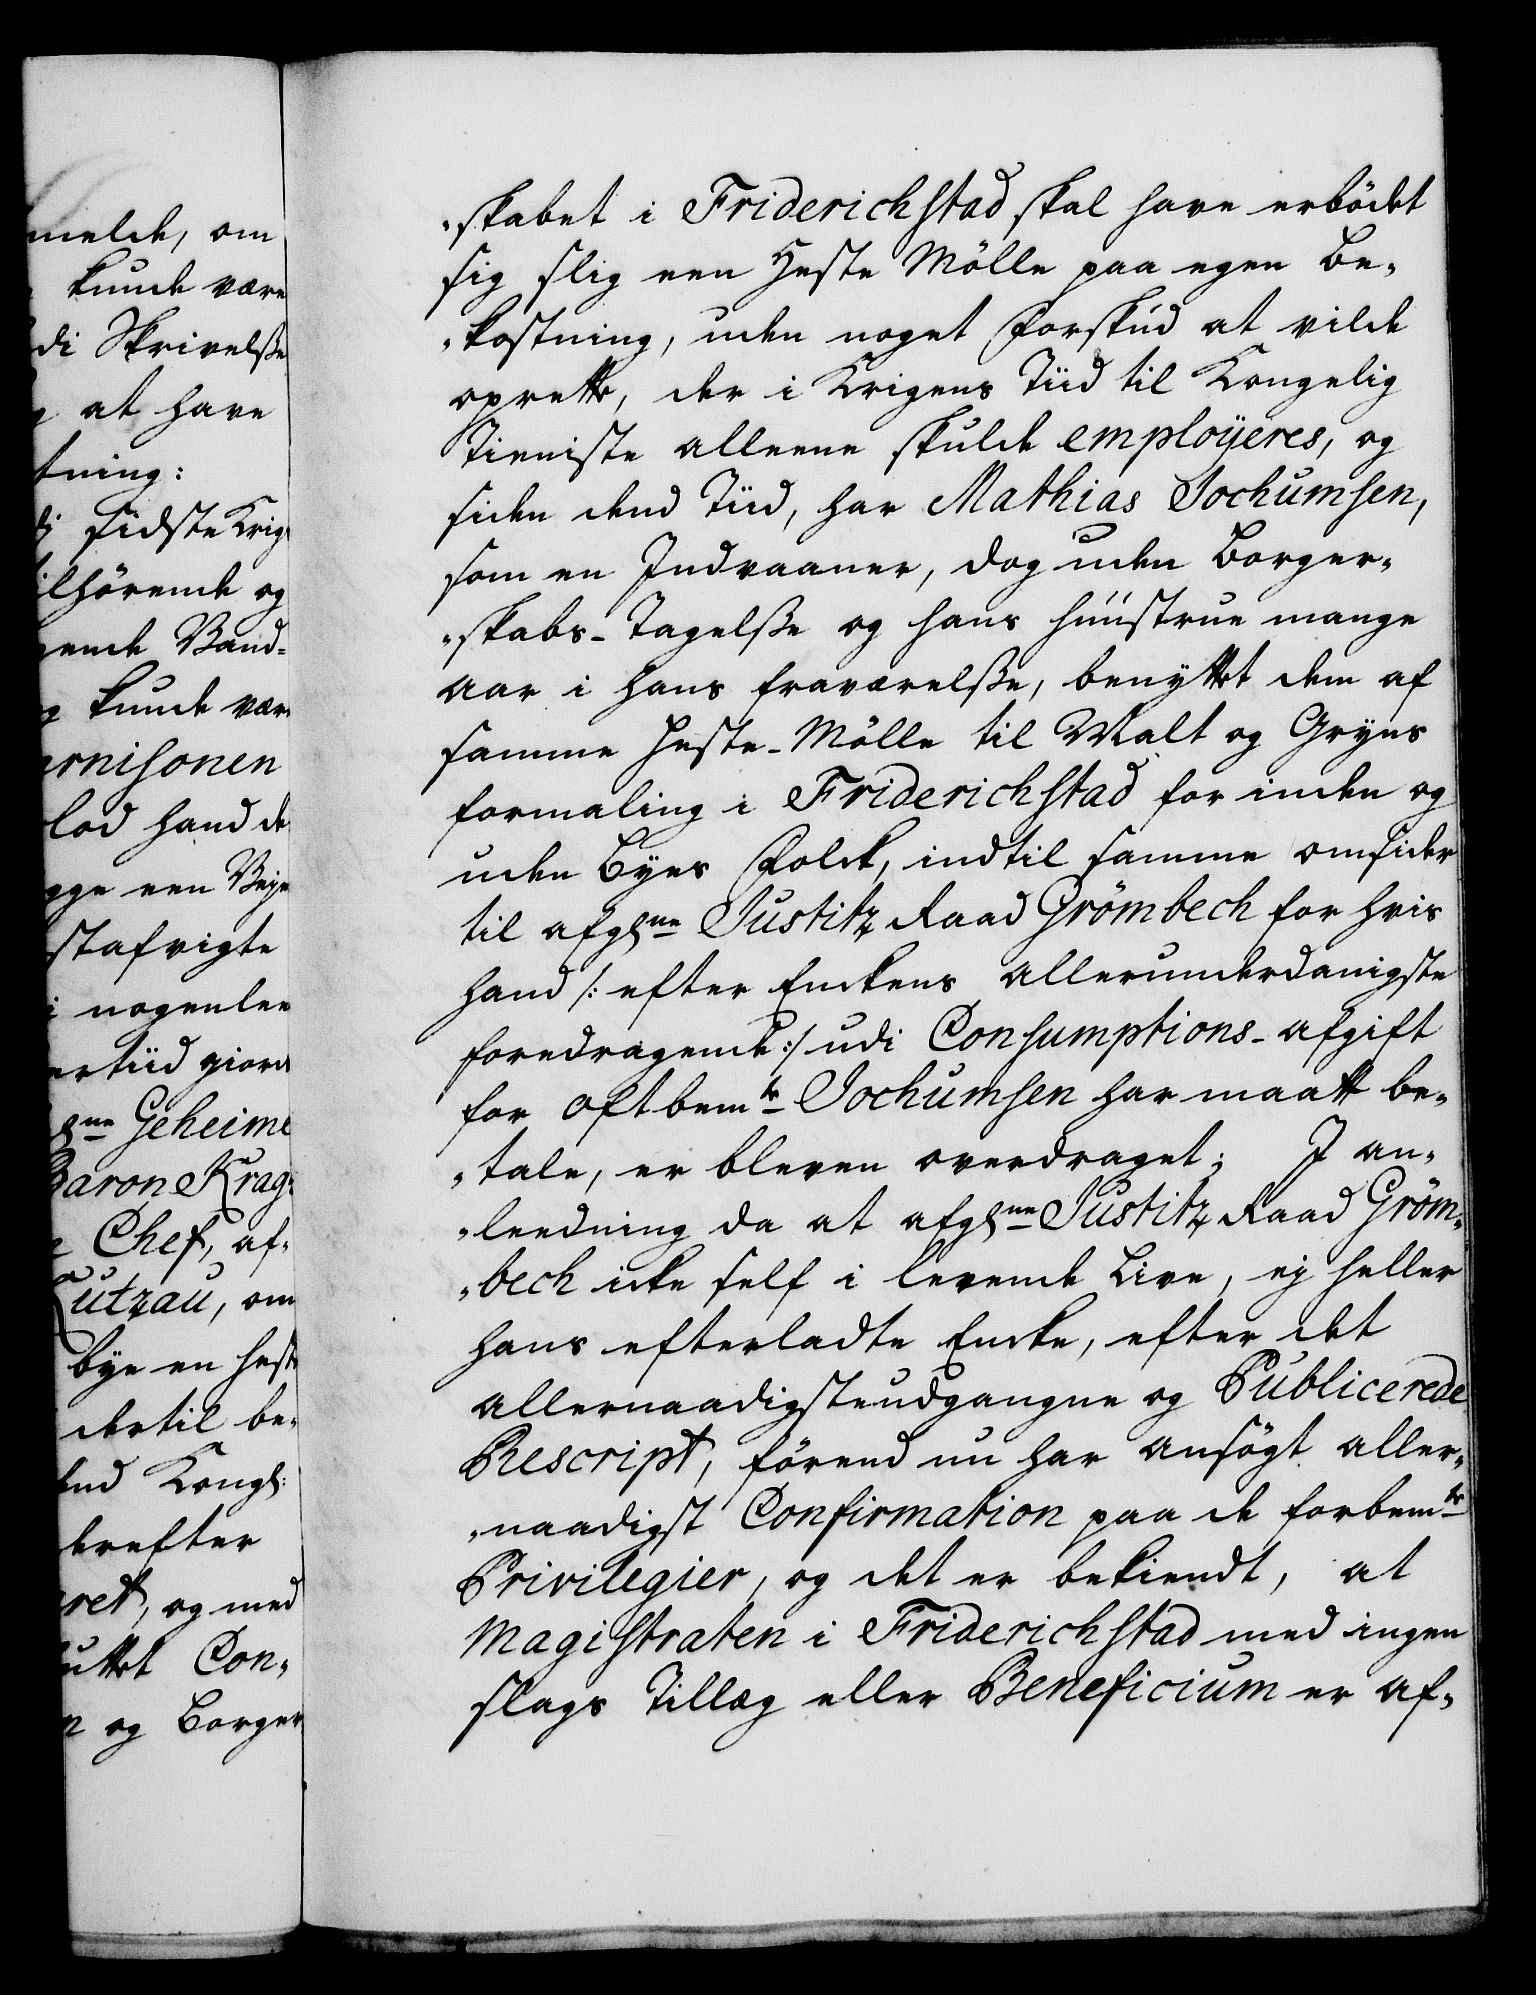 melde, om
kunde være
di Skrivelsse
at have
tning:
sidste Krig
ilhörende og
ende Vand=
kunde vær
rnisonen
lod hand de
gge een Veje
stafrigte
nogenlee
ertiid giord
Geheime
Baron Krag
Chef, af„
Lützau, om
bye en hest
dertil be„
end Kongl:
derefter
ret, og med
uttet Con„
og Borger
„skabet i Friderichstad skal have erbödet
sig slig een Heste Mölle paa egen Be„
„kostning, uden noget Forskud at vilde
oprette, der i Krigens Tiid til Kongelig
Tieniste alleene skulde employeres, og
siden dend Tiid, har Mathias Jochumsen,
som en Indvaaner, dog uden Borger„
„skabs-Tagelsse og hans Huustrue mange
Aar i hans fraværelsse, benyttet dem af
samme Heste-Mölle til Malt og Gryns
formaling i Friderichstad for inden og
uden Byes Folck, indtil samme omsider
til afgl:ne Justitz Raad Grömbech for hvis
hand /: efter Enckens allerunderdanigste
foredragende :/ udi Consumptions-afgift
for oftbem:te Jochumsen har maatt be„
„tale, er bleven overdraget; I an„
„leedning da at afgl:ne Justitz Raad Gröm„
„bech icke self i levende Live, ej heller
hans efterladte Encke, efter det
allernaadigst udgangne og Publicerede
Rescript, förend nu har ansögt aller„
„naadigst Confirmation paa de forbem:te
Privilegier, og det er bekiendt, at
Magistraten i Friderichstad med ingen
slags Tillæg eller Beneficium er af„